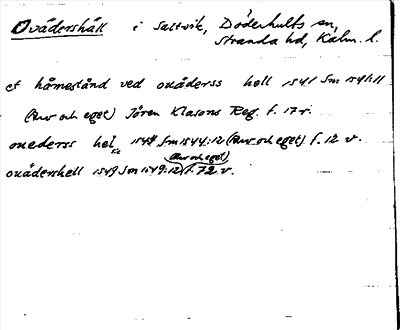 Ovädershäll i Saltvik, Döderhults sn,
Stranda hd, Kalm. l.
et håmestånd ved ouåderss hell 1541 Sm 1541:11
(Arv och eget) Jören Klasons Reg. f. 17 r.
onederss hel sic 1544 Sm 1544:12 (Arv och eget) f. 12 v.
(Arv och eget)
ouådershell 1549 Sm 1549:12 f. 72 v.